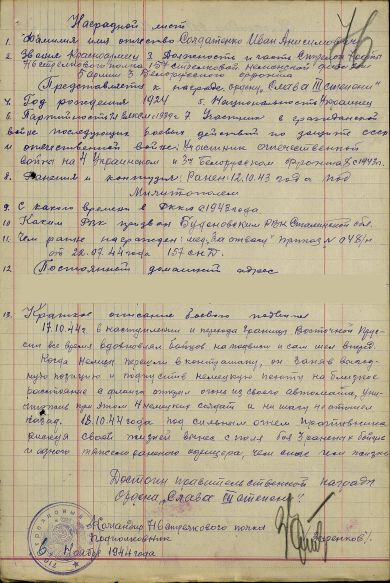 Наградной лист
1. Фамилия имя отчество Солдатенко Иван Анисимович
2. Звание Красноармеец 3. Должность и часть Стрелок роты
716 стрелкового полка 157 стрелковой Неманской дивизии
5 армии 3 Белорусского фронта
Представляется к награде ордену "Слава III степени"
4. Год рождения 1924 5. Национальность Украинец
6. Партийность 7. Участник в гражданской
войне последующих боевых действий по защите СССР
и отечественной войне: Участник отечественной
войны на 4 Украинском и 3м Белорусском фронтах с 1943г.
8. Ранения и контузии: Ранен 12.10.43 года под
Мелитополем
9. С какого времени в РККА с 1943 года
10 Каким РВК призван Буденовским РВК Сталинской обл.
11. Чем ранее награжден: мед. "За отвагу" приказ № 048/н
от 22.07.44 года 157 СД
12. Постоянный домашний адрес
13. Краткое описание боевого подвига
17.10.44г. в наступлении и перехода границы Восточной Прус-
сии все время вдохновлял бойцов на подвиги и сам шел вперед.
Когда немцы перешли в контратаку, он заняв выгод-
ную позицию и подпустив немецкую пехоту на близкое
расстояние с фланга открыл огонь из своего автомата, уни-
чтожив при этом 4 немецких солдат и ни шагу не отошел
назад. 18.10.44 года под сильным огнем противника
рискуя своей жизнью вынес с поля боя 3 раненых бойцов
и одного тяжело раненого офицера, чем спас им жизнь
Достоин правительственной награды
Ордена "Слава III степени"
Командир 716 стрелкового полка
Подполковник
6. Ноября 1944 года